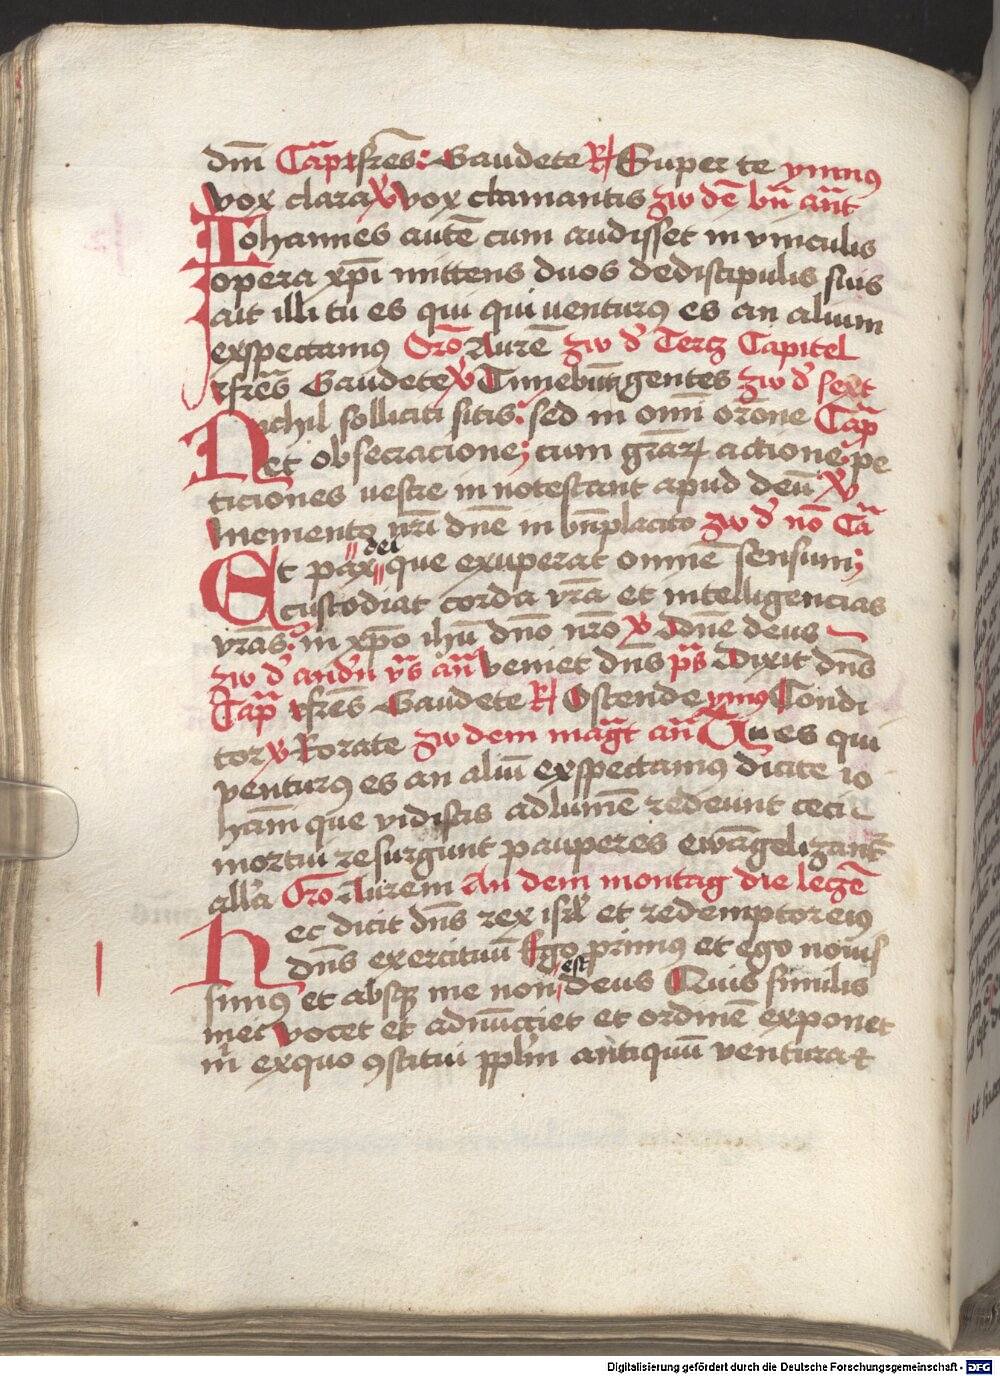 dm̄ Cap̄ rfrēs: Gaudete R Super te ymnus
vox clara v̄ vox clamantis zw dē bn̄ an̄t
Iohannes autē cum audisset in vinculis
opera xp̄i mittens duos de discipulis suis
ait illi tu es qui qui uenturꝰ es an alium
exspectamus Orō Aurē zw d̄ Tertz Capitel
rfrēs Gaudete v̄ Timebūt gentes zw d̄ sext
Nichil solliciti sitis: sed in omī orōne Cap̄
et obsecracione; cum grāꝝ actione: pe
ticiones uestre in notescant apud deū v̄
memento nr̄i dn̄e in bn̄placito zw d̄ nō Cā
Et pax dei que exuperat omnē sensum;
custodiat corda vr̄a et intelligencias
vr̄as: in xp̄o ih̄u dn̄o nr̄o v̄ dn̄e deus
zw d̄ andn̄ vs̄ an̄ veniet dn̄s ps̄ Dixit dn̄s
Cap̄ rfrēs Gaudete R Ostende ymꝰ Condi
tor v̄ Rorate zw dem magt̄ an̄ Tu es qui
venturꝰ es an aliū exspectamus dicite io
han̄i que vidistis ad lumē redeunt ceci
mortui resurgunt pauperes ewāgelizant̄
all̄a Orō Aurem An dem montag die letzē
Hec dicit dn̄s rex isrl̄ et redemptor eius
dn̄s exercituū Ego primus et ego nouis
simꝰ et absqꝫ me non est deus Quis similis
mei vocet et adnūcciet et ordinē exponet
m̄ ex quo ꝯstitui ppl̄m antiquū ventura et
Digitalisierung gefördert durch die Deutsche Forschungsgemeinschaft - DFG